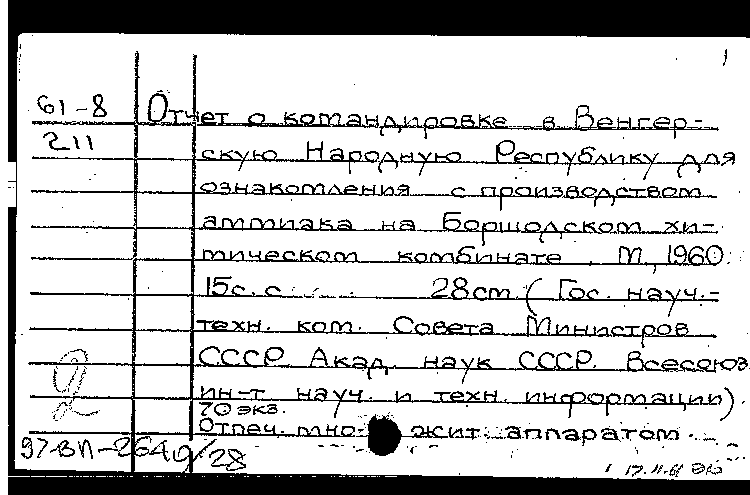 1
61-8 Отчет о командировке в Венгер-
211
скую Народную Республику для
ознакомления с производством
аммиака на Боршодском хи-
мическом комбинате. М., 1960.
15с. с 28см. (Гос. науч.-
техн. ком. Совета Министров
СССР. Акад. наук СССР. Всесоюз.
2
ин-т науч. и техн. информации).
70 экз.
Отпеч. множит. аппаратом.
97-ВП-2640/28
1 17.11.61